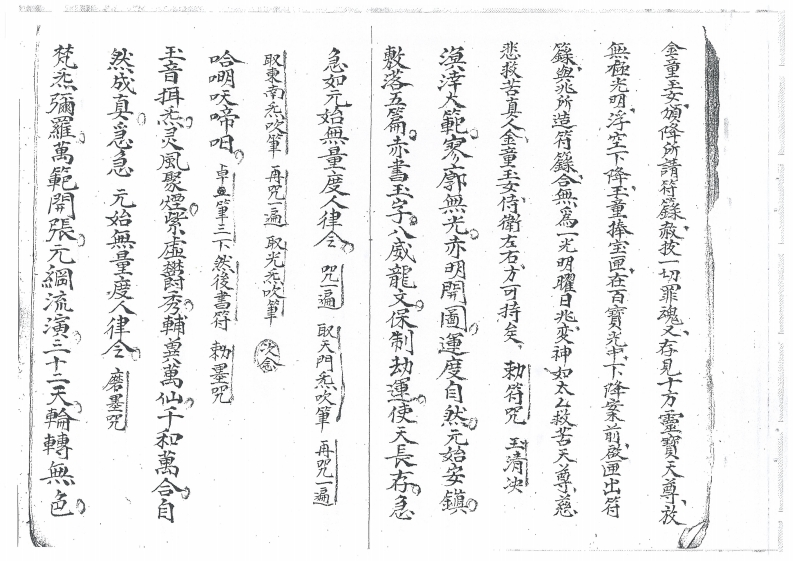 金童玉女頒降所請符籙、救拔一切罪魂、又存見十方靈寶天尊、放
無極光明、浮空下降、玉童捧宝匣、在百寶光中、下降案前、啟匣出符
籙、與兆所造符籙、合無爲一、光明曜日、兆変神如太乙救苦天尊、慈
悲救苦真人、金童玉女、侍衛左右、方可持矣、 勅符咒 玉清决
溟涬大範。寥廓無光。赤明開圖。運度自然。元始安鎮。
敷落五篇。赤書玉字。八威龍文。保制劫運。使天長存。急
急如元始無量度人律令。 咒一遍 取天門炁吹筆 再咒一遍
取東南炁吹筆 再咒一遍 取光炁吹筆 次念
唅㖿吠啼呾。 卓筆三下然後書符 勅墨咒
玉音揖炁。灵風聚煙。紫虛欝秀。輔翼萬仙。千和萬合。自
然成真。急急 元始無量度人律令。 磨墨咒
梵炁彌羅。萬範開張。元綱流演。三十二天。輪轉無色。